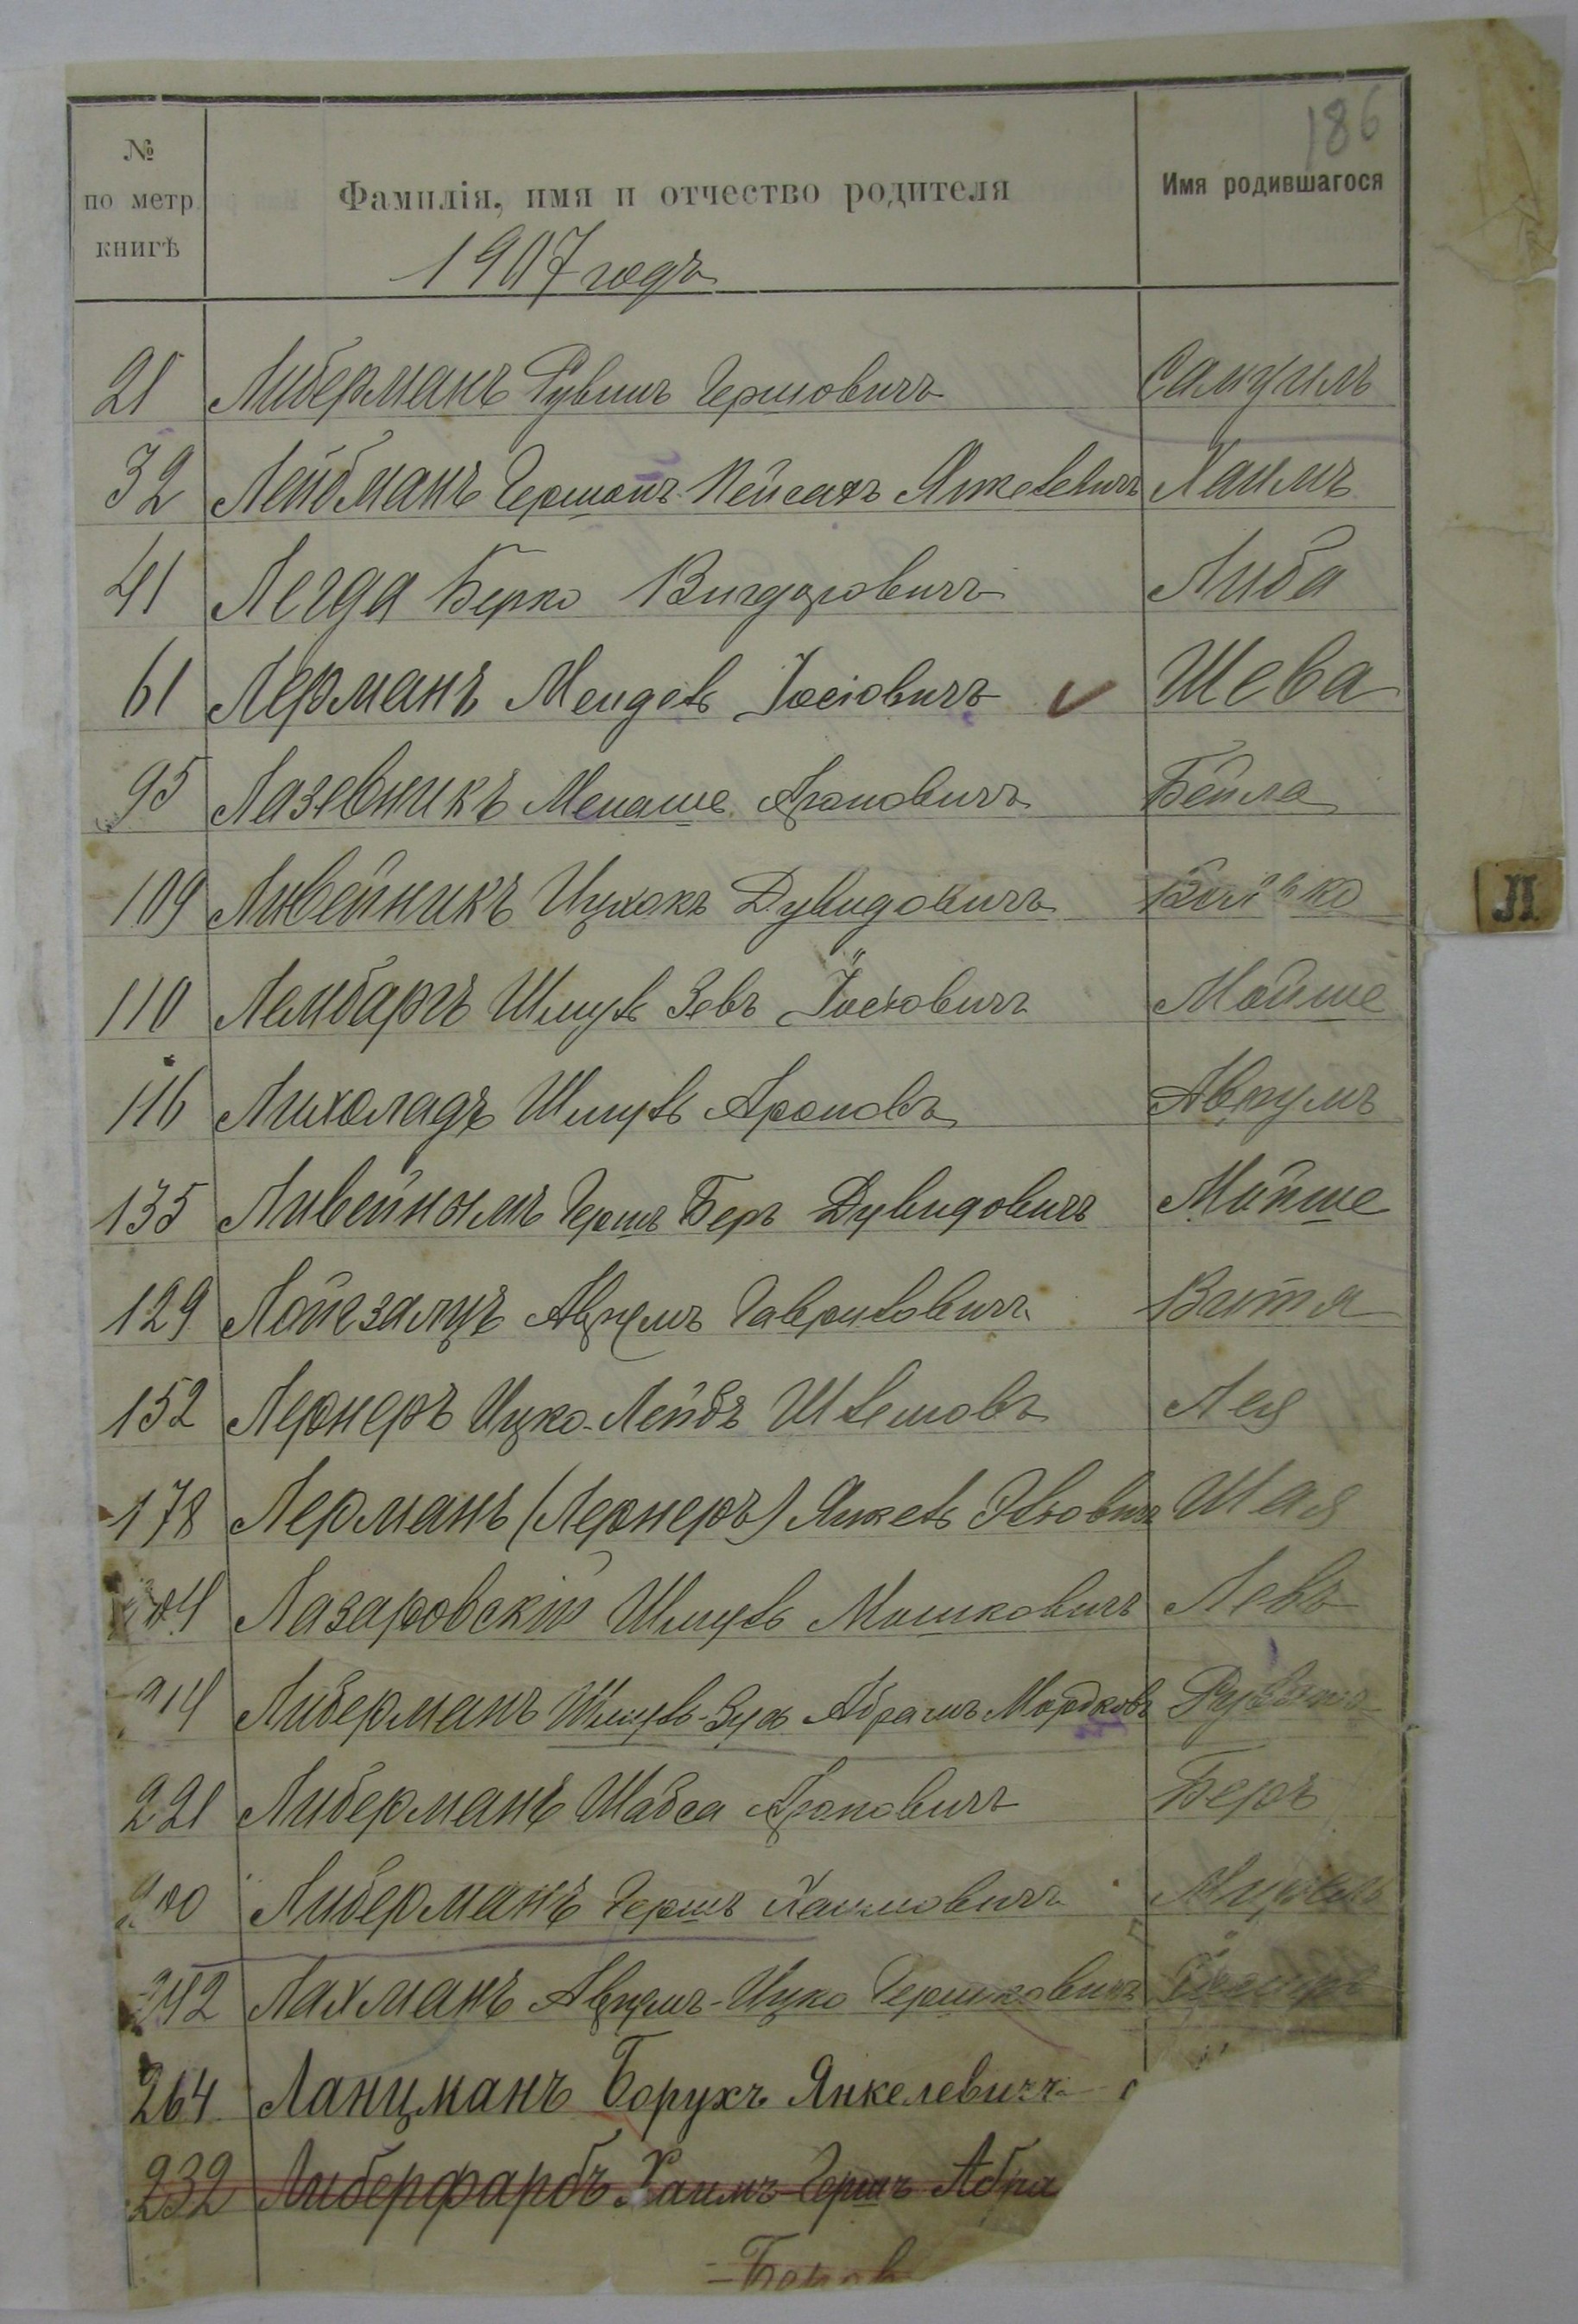 186
№ по метр книгѣ
Фамилія, имя и отчество родителя
Имя родившагося
1907 годъ
21 Либерманъ Рувинъ Гершовичъ Самуилъ
32 Лейбманъ Гершонъ Пейсахъ Янкелевичъ Хаимъ
41 Легда Берко Вигдоровичъ Либа
61 Лерманъ Мендель Іосіовичъ Шева
95 Лазевникъ Менаше Ароновичъ Бейла
109 Ливейникъ Ицхокъ Дувидовичъ
110 Лембаргъ Шмуль Зевъ Мойше
Л
116 Лихоладъ Шмуль Ароновъ Аврумъ
135 Гершъ Беръ Дувидовичъ Мойше
129 Аврумъ Гавриловичъ Витя
152 Лернеръ Ицко-Лейбъ Шлемовъ Лея
178 Лерманъ (Лернеръ) Янкель Шая
Лазаровскій Шмуль Мошковичъ Левъ
Либерманъ Шмуль-Зусь Абрамъ Мордковъ Рувинъ
221 Либерманъ Шабса Ароновичъ Беръ
Либерманъ Гершъ Хаимовичъ
242 Лахманъ Аврумъ-Ицко Гершковичъ
264 Ланцманъ Борухъ Янкелевичъ
232 Либерфарбъ Хаимъ-Гершъ Абра